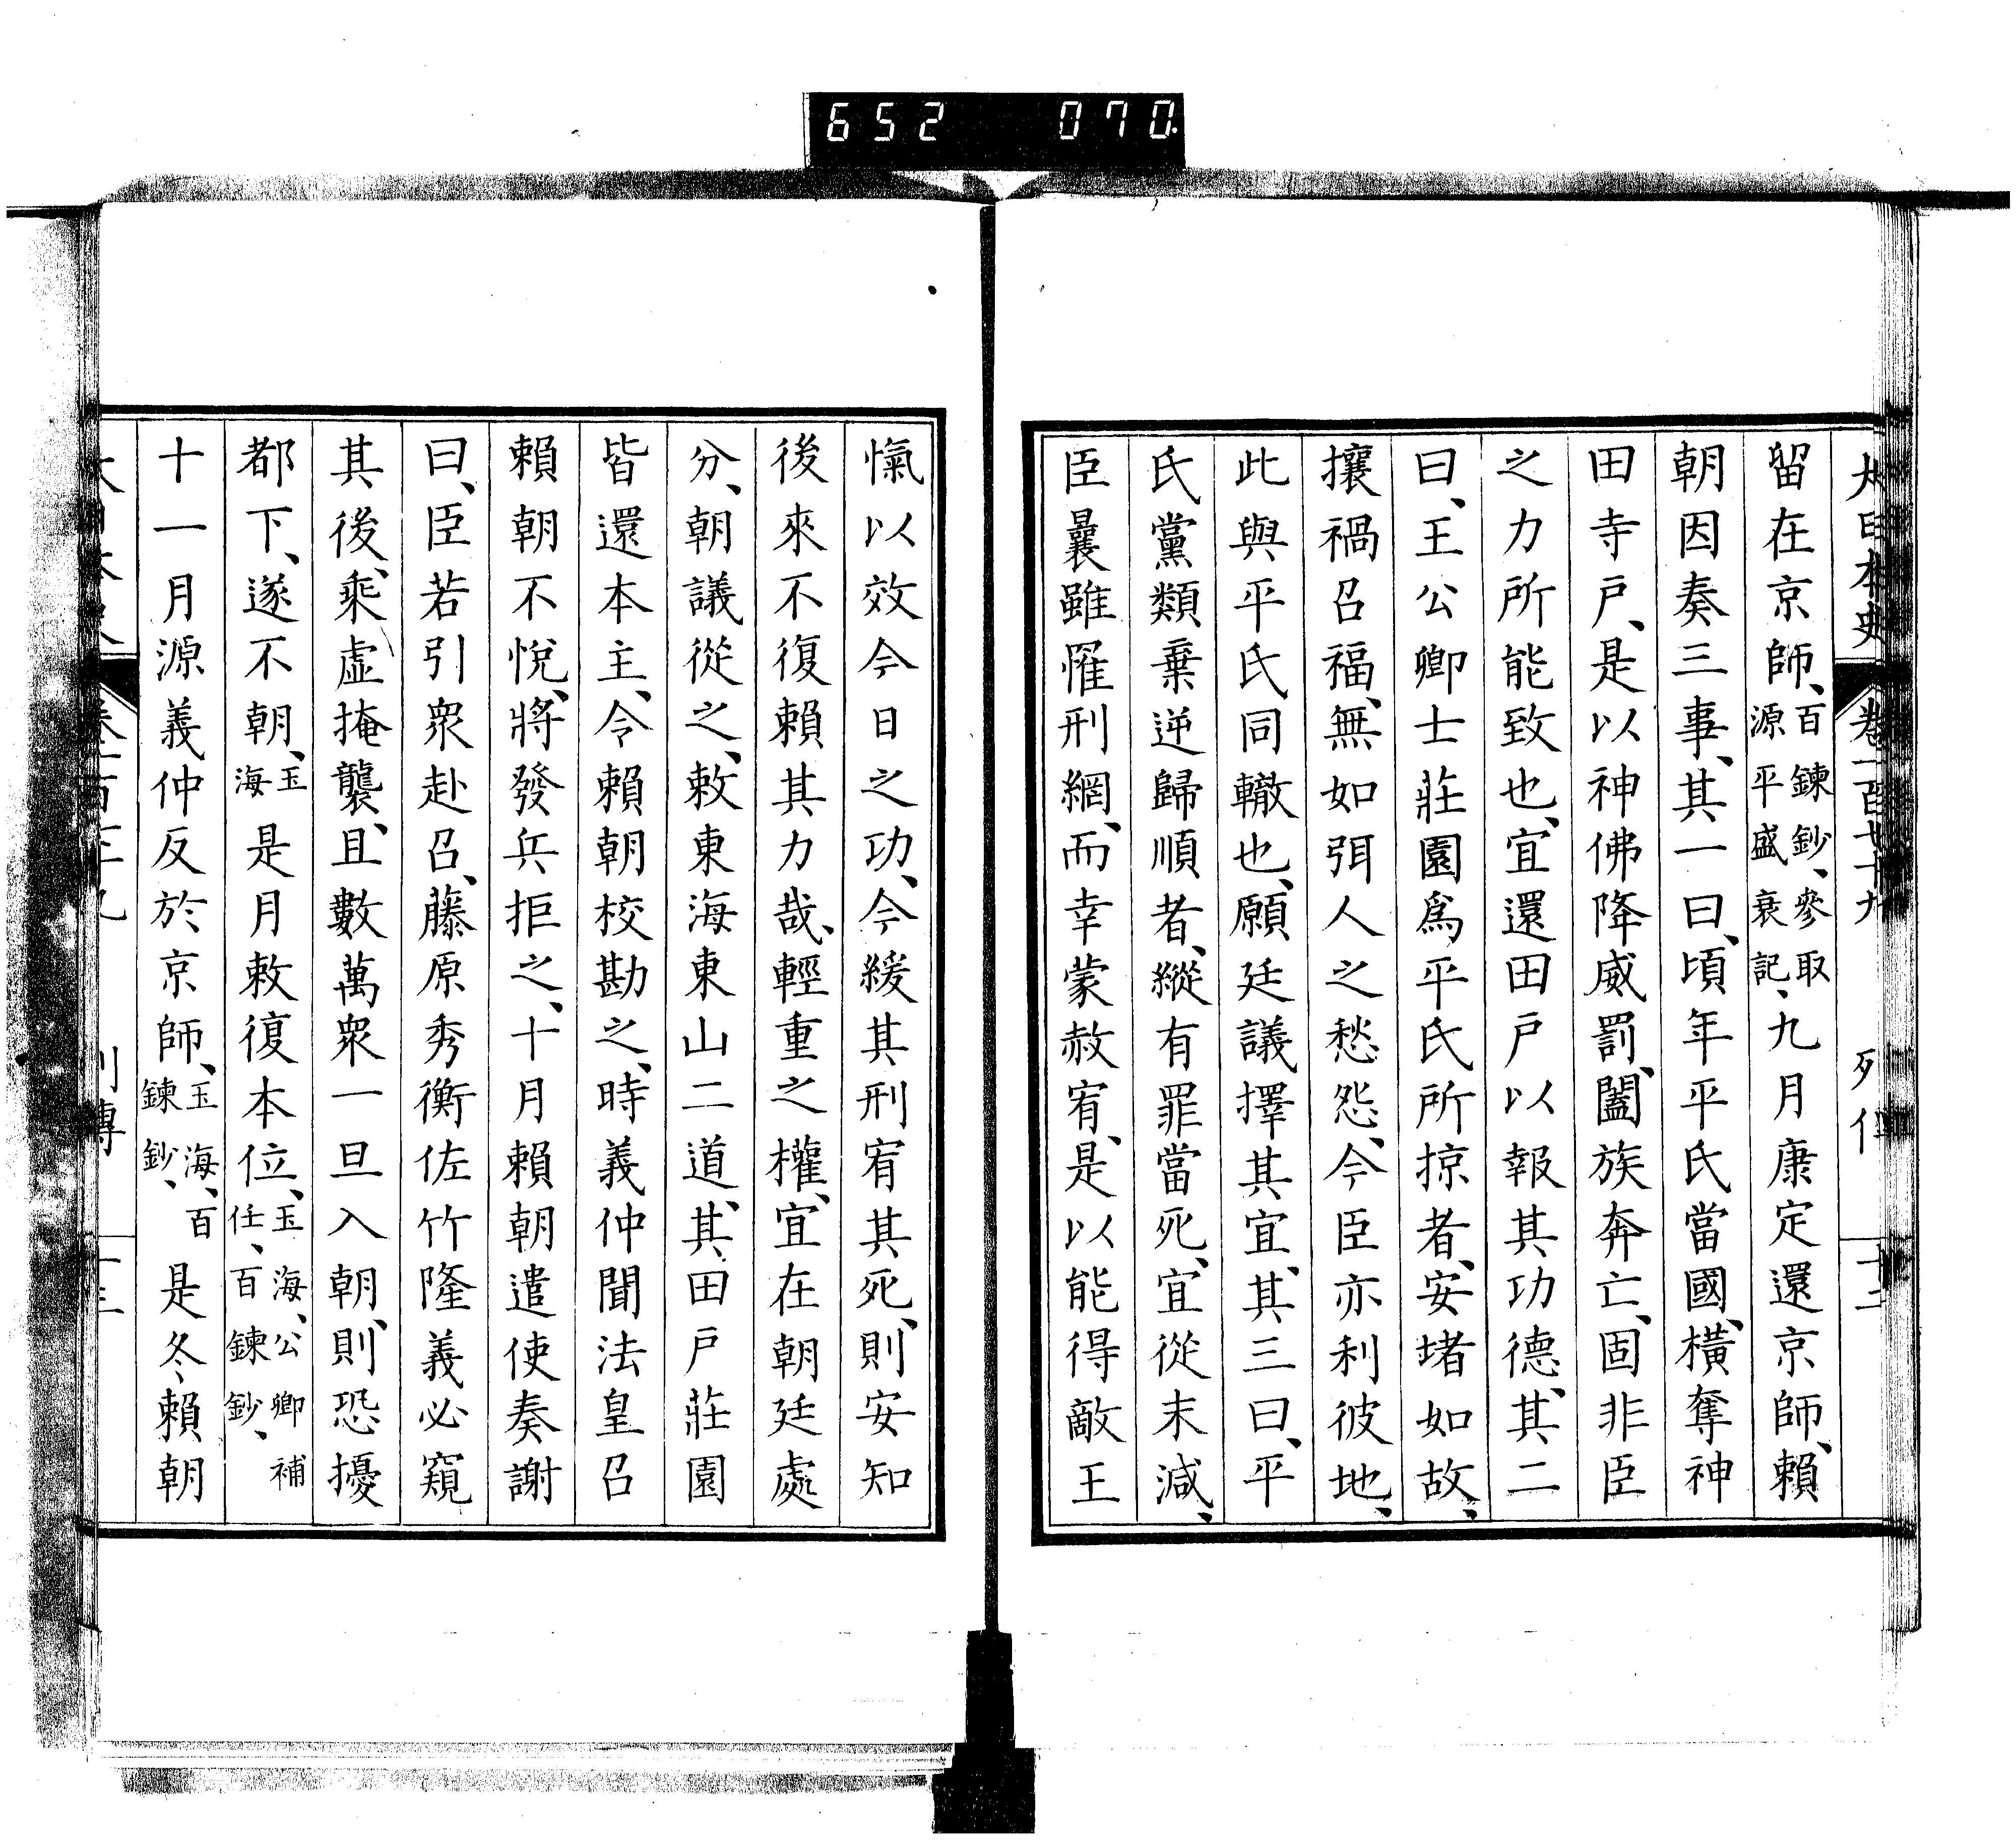 652 070
大日本史 卷一百七十九 列傳 十二
留在京師、百鍊鈔、參取源平盛衰記、九月康定還京師、賴
朝因奏三事、其一曰、頃年平氏當國、橫奪神
田寺戶、是以神佛降威罰、闔族奔亡、固非臣
之力所能致也、宜還田戶以報其功德、其二
曰、王公卿士莊園爲平氏所掠者、安堵如故、
攘禍召福、無如弭人之愁怨、今臣亦利彼地、
此與平氏同轍也、願廷議擇其宜、其三曰、平
氏黨類棄逆歸順者、縱有罪當死、宜從末減、
臣曩雖罹刑網、而幸蒙赦宥、是以能得敵王
愾以效今日之功、今緩其刑宥其死、則安知
後來不復賴其力哉、輕重之權、宜在朝廷處
分、朝議從之、敕東海東山二道、其田戶莊園
皆還本主、令賴朝校勘之、時義仲聞法皇召
賴朝不悅、將發兵拒之、十月賴朝遣使奏謝
曰、臣若引衆赴召、藤原秀衡佐竹隆義必窺
其後、乘虛掩襲、且數萬衆一旦入朝、則恐擾
都下、遂不朝、玉海是月敕復本位、玉海、公卿補任、百鍊鈔、
十一月源義仲反於京師、玉海、百鍊鈔、是冬、賴朝